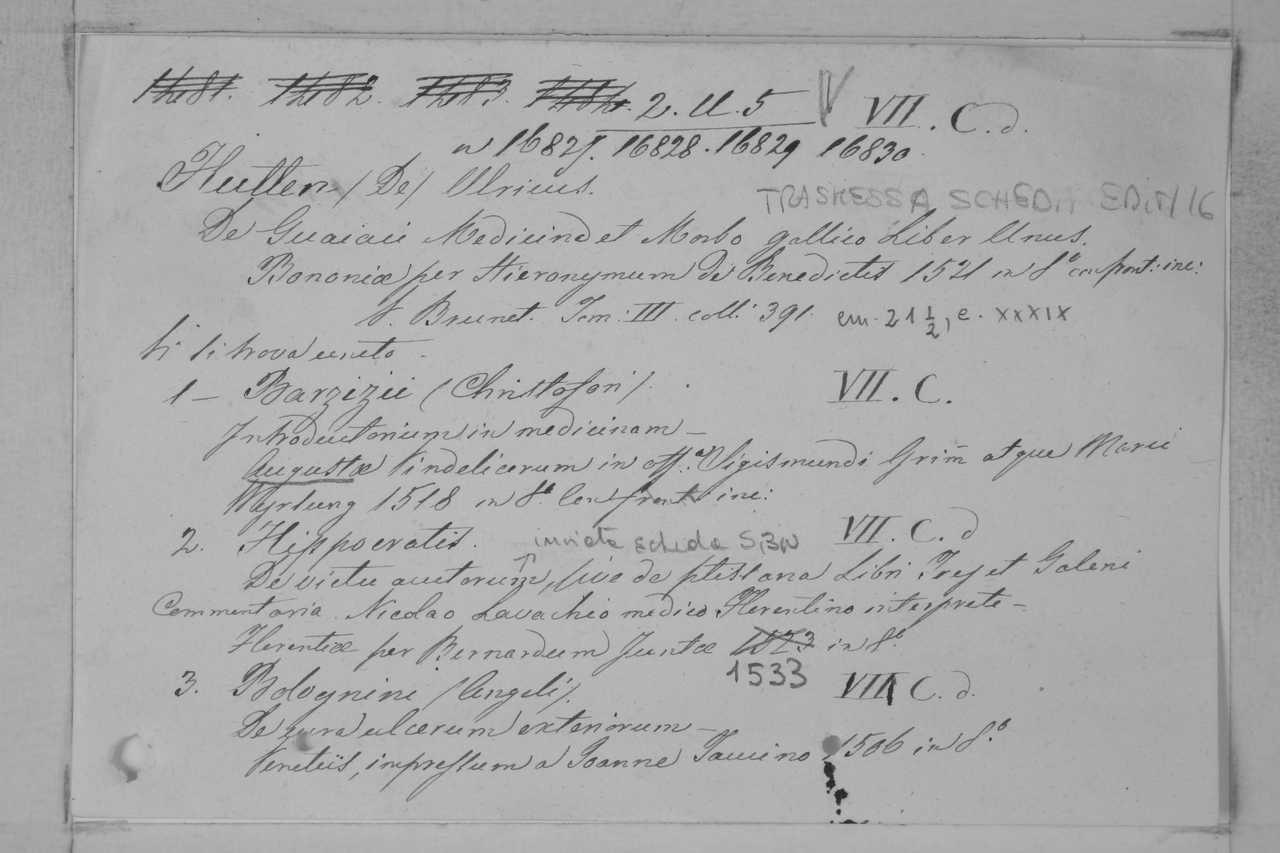 2. U. 5 V VII. C. d.
n 16827. 16828. 16829 16830
Hutten (De) Ulricus.
TRASMESSA SCHEDA EDIT/16
De Guaiaci Medicina et Morbo gallico Liber Unus.
Bononiæ per Hieronymum de Benedictis 1521 in 8.º con front: inc:
V. Brunet. Tom: III. coll: 391. cm. 21 1/2, c. XXXIX
Vi si trova unito.
1 — Barzizii (Christofori). VII. C.
Introductorium in medicinam —
Augustæ Vindelicorum in off.ª Sigismundi Grim̄ atque Marci
Wyrsung 1518 in 8.º Con front inc:
2. Hippocratis. inviata scheda SBN VII. C. d
De victu acutorum, sive de ptissana Libri Tres et Galeni
Commentaria. Nicolao Lavachio medico Florentino interprete —
Florentiæ per Bernardum Juntæ 1523 in 8.º
1533
3. Bolognini (Angeli). VII C. d.
De cura ulcerum exteriorum —
Venetiis, impressum a Joanne Tacuino 1506 in 8.º